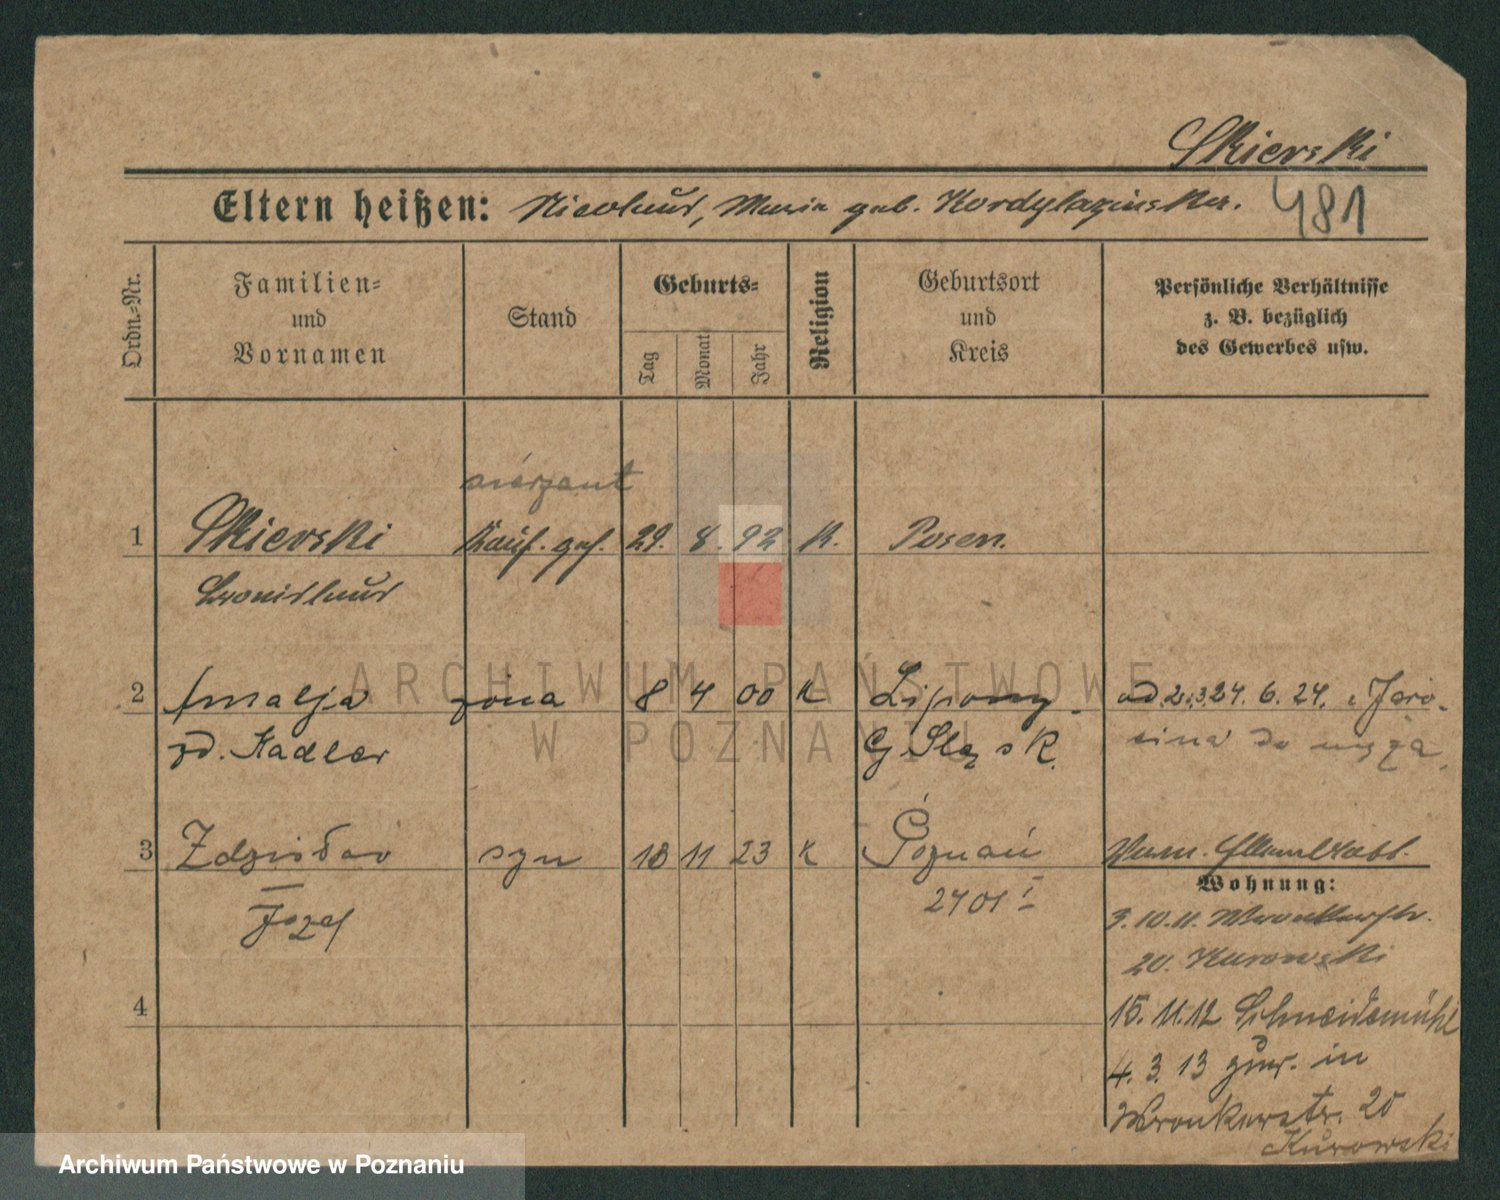 Skierski
Eltern heißen: Nicolaus, Maria geb. Kordylazinska. 481
Ordn.=Nr.
Familien=
und
Vornamen
Stand
Geburts=
Tag
Monat
Jahr
Religion
Geburtsort
und
Kreis
Persönliche Verhältnisse
z. B. bezüglich
des Gewerbes usw.
sierżant
1 Skierski Kauf. gef. 29. 8. 92 K. Posen.
Bronislaus
2 Amalja żona 8 4 00 K Lipowy
zd. Kadler G. Śląsk.
od 24. 6. 24. Jaro-
cina do męża
3 Zdzisław syn 18 11 23 K Poznań
Józef 2401 I
Wohnung:
3. 10. 11. Wronkerstr.
20. Kurowski
4
15. 11. 12 Schneidemühl
4. 3. 13 zur. in
Wronkerstr. 20
Kurowski
ARCHIWUM PAŃSTWOWE
W POZNANIU
Archiwum Państwowe w Poznaniu